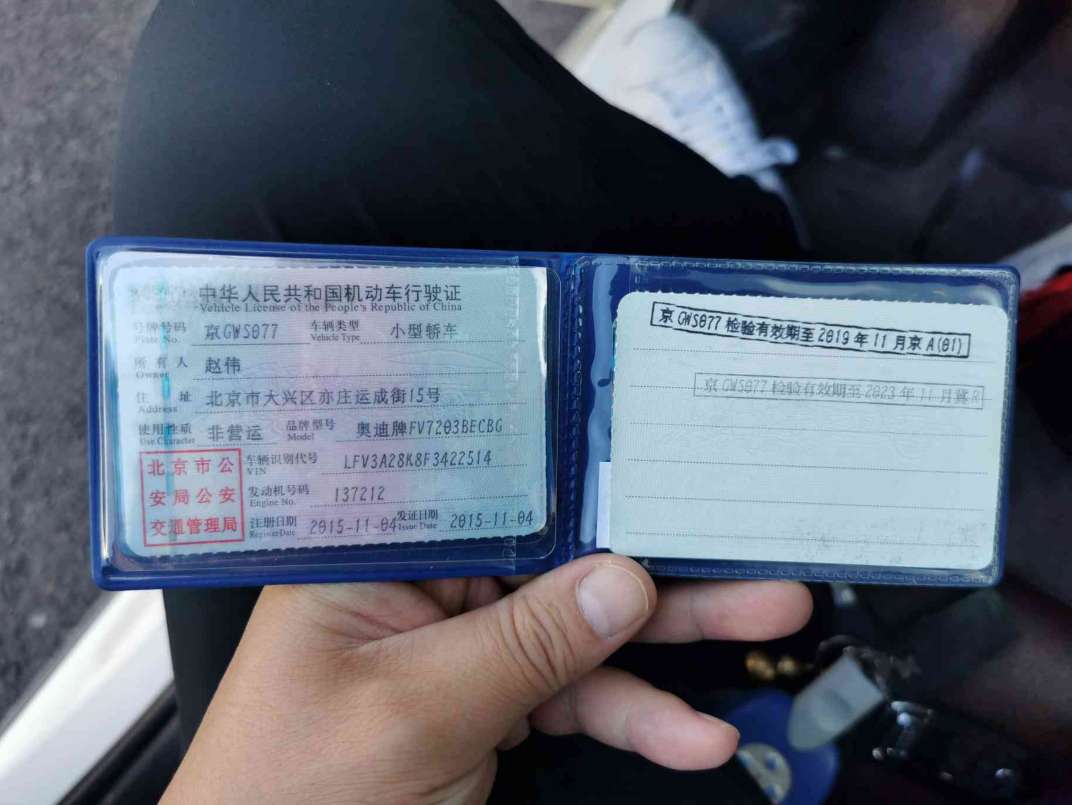 中华人民共和国机动车行驶证
Vehicle License of the People's Republic of China
号牌号码 京GWS077 车辆类型 小型轿车
Plate No. Vehicle Type
所有人 赵伟
Owner
住址 北京市大兴区亦庄运成街15号
Address
使用性质 非营运 品牌型号 奥迪牌FV7203BECBG
Use Character Model
北京市公
安局公安
交通管理局
车辆识别代号 LFV3A28K8F3422514
VIN
发动机号码 137212
Engine No.
注册日期 2015-11-04 发证日期 2015-11-04
Register Date Issue Date
京GWS077检验有效期至2019年11月京A(01)
京GWS077检验有效期至2023年11月冀R